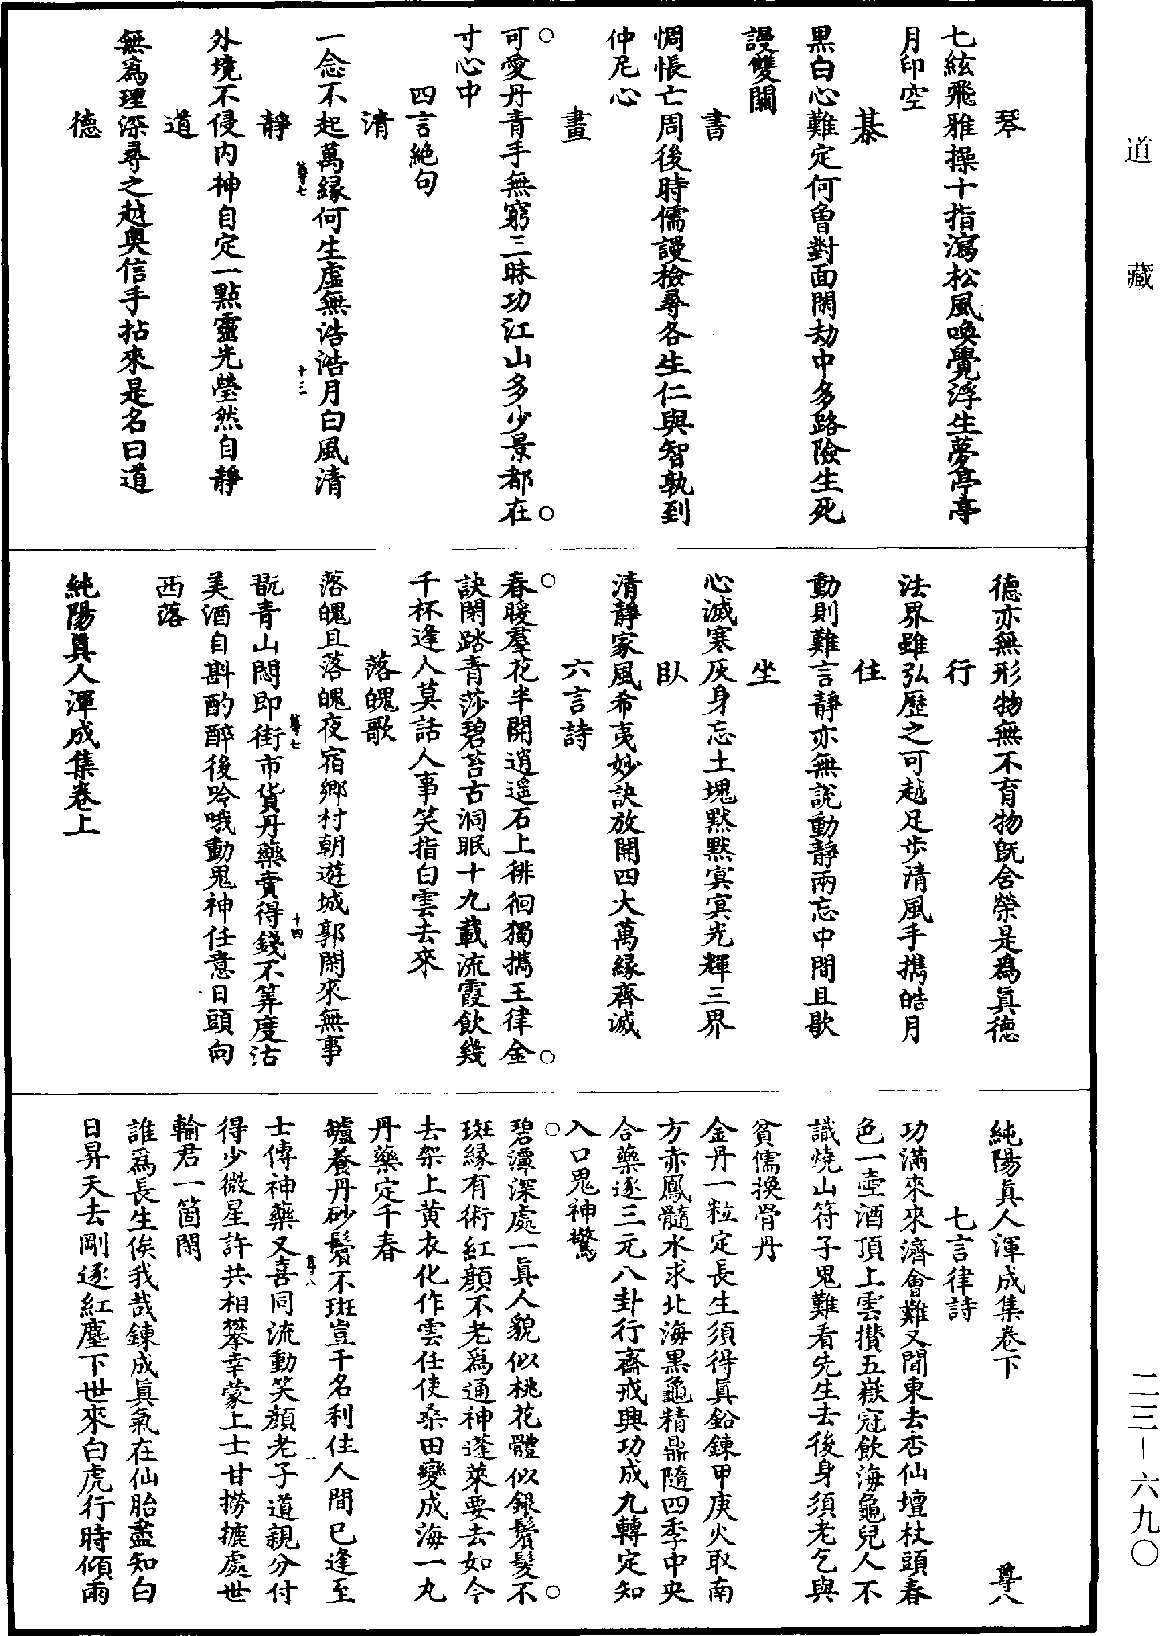 道藏
琴
七絃飛雅操十指瀉松風喚覺浮生夢亭亭
月印空
棊
黑白心難定何曾對面閑劫中多路險生死
謾雙關
書
惆悵亡周後時儒謾檢尋各生仁與智孰到
仲尼心
畫
可愛丹青手無窮三昧功江山多少景都在
寸心中
四言絕句
清
一念不起萬緣何生虛無浩浩月白風清
尊七
十三
靜
外境不侵內神自定一點靈光瑩然自靜
道
無為理深尋之越奧信手拈來是名曰道
德
德亦無形物無不育物旣含榮是為眞德
行
法界雖弘歷之可越足步清風手攜皓月
住
動則難言靜亦無說動靜兩忘中間且歇
坐
心滅寒灰身忘土塊黙黙寞寞光輝三界
臥
清靜家風希夷妙訣放開四大萬緣齊滅
六言詩
春暖羣花半開逍遙石上徘徊獨攜玉律金
訣閑踏青莎碧苔古洞眠十九載流霞飲幾
千杯逢人莫話人事笑指白雲去來
落魄歌
落魄且落魄夜宿鄉村朝遊城郭閑來無事
翫青山悶即街市貨丹藥賣得錢不筭度沽
尊七
十四
美酒自斟酌醉後吟哦動鬼神任意日頭向
西落
純陽眞人渾成集卷上
純陽眞人渾成集卷下
尊八
七言律詩
功滿來來濟會難又聞東去杏仙壇杖頭春
色一壺酒頂上雲攢五嶽冠飲海龜兒人不
識燒山符子鬼難看先生去後身須老乞與
貧儒換骨丹
金丹一粒定長生須得眞鉛鍊甲庚火取南
方赤鳳髓水求北海黑龜精鼎隨四季中央
合藥逐三元八卦行齋戒興功成九轉定知
入口鬼神驚
碧潭深處一眞人貌似桃花體似銀鬢髮不
斑緣有術紅顏不老為通神蓬萊要去如今
去架上黃衣化作雲任使桑田變成海一丸
丹藥定千春
罏養丹砂鬢不斑豈干名利住人間已逢至
士傳神藥又喜同流動笑顏老子道親分付
尊八
一
得少微星許共相攀幸蒙上士甘撈摝處世
輸君一箇閑
誰為長生俟我哉鍊成眞氣在仙胎盡知白
日昇天去剛逐紅塵下世來白虎行時傾雨
二三－六九〇